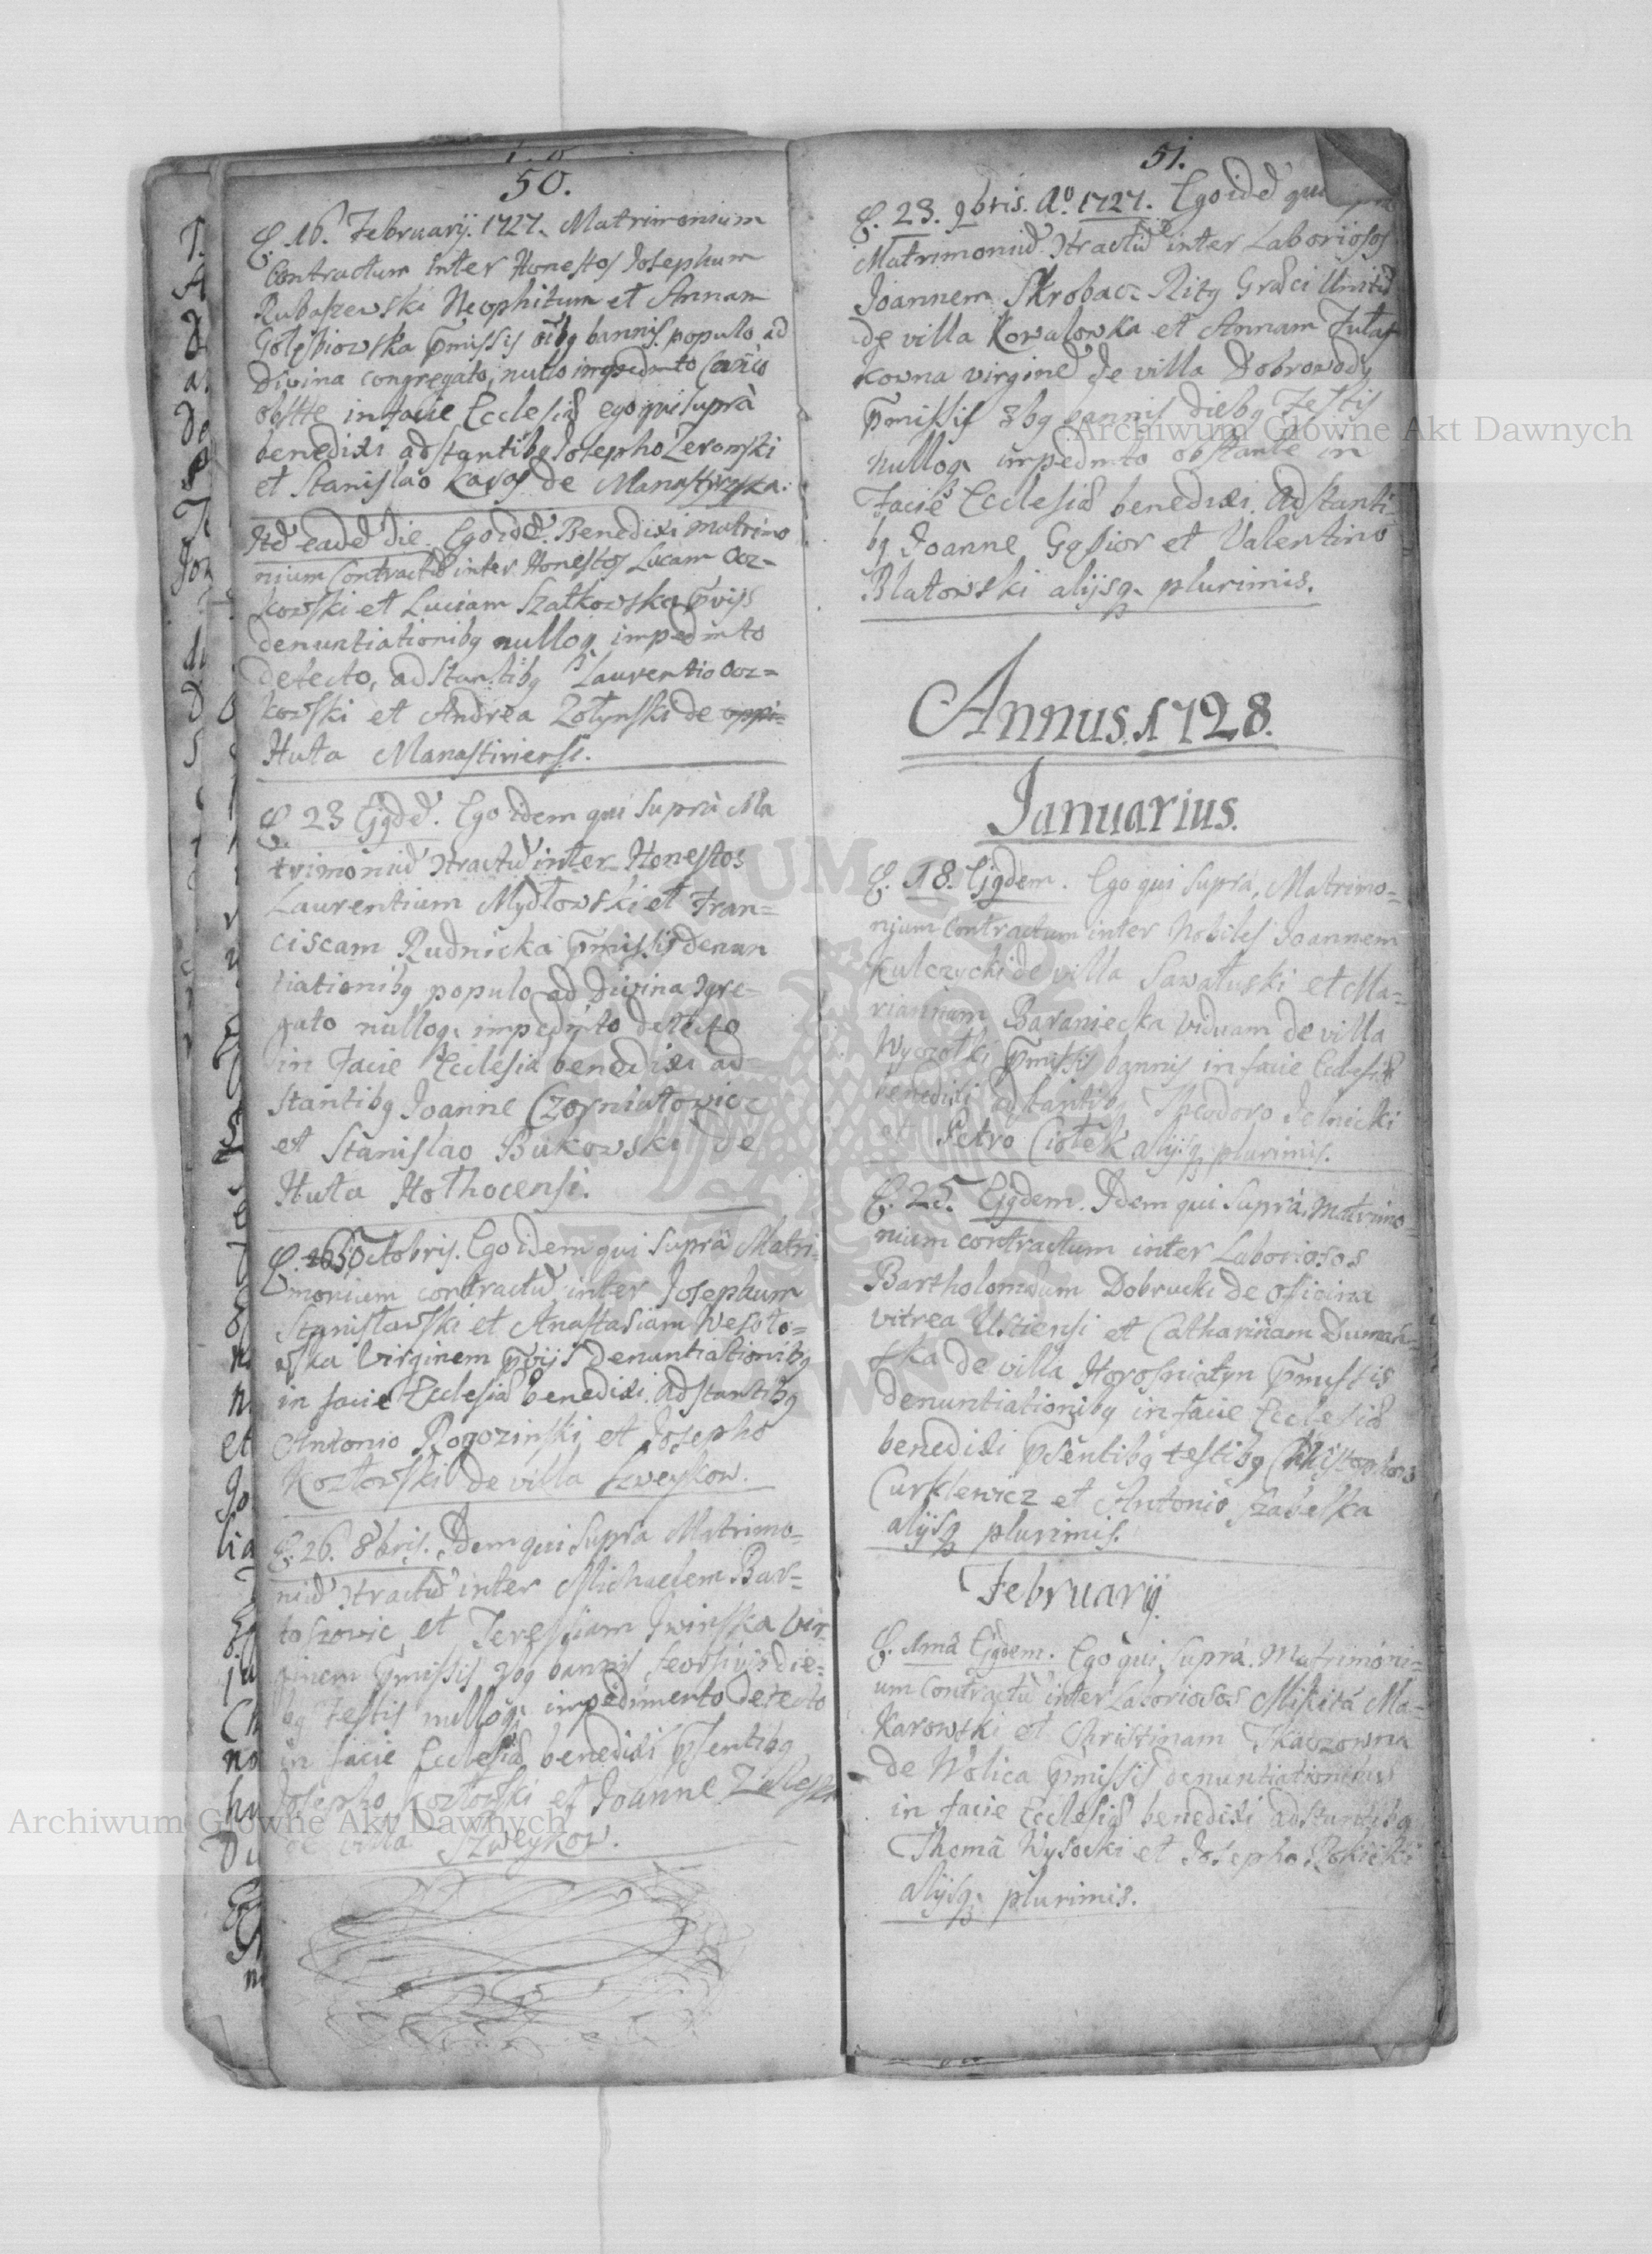 50.
16. February. 1727. Matrimonium
Contractum inter Honestos Josephum
Rubaszewski Neophitum et Annam
Gołębiowska p̄missis bannis populo ad
Divina congregato, nullo impedmto Canico
obstte in facie Ecclesiæ ego qui suprà
benedixi adstantibq Josepho Zerowski
et Stanislao Karas de Manastyrzyska.
Itē eadē die. Ego idē. Benedixi matrimo
nium Contractū inter Honestos Lucam Ocz=
kowski et Luciam Szatkowska p̄vijs
denuntiationibq nulloq impedmto
detecto, adstantibq Laurentio Ocz=
kowski et Andrea Zołynski de oppi=
Huta Manastiriensi.
23 Ejqdē. Ego idem qui suprà Ma
trimoniū Ɔtractū inter Honestos
Laurentium Mydłowski et Fran=
ciscam Rudnicka p̄missis denun
tiationibq populo ad Divina Ɔgre=
gato nulloq impedmto detecto
in facie Ecclesiæ benedixi ad=
stantibq Joanne Czerniatowicz
et Stanislao Bukowski de
Huta Hothocensi.
Octobris. Ego idem qui suprà Matri=
monium contractū inter Josephum
Stanisławski et Anastasiam Wesoło=
wska Virginem p̄vijs denuntiationibq
in facie Ecclesiæ benedixi. adstantibq
Antonio Rogozinski et Josepho
Kozłowski de villa Szweykow.
26. 8bris. Idem qui supra Matrimo=
niū Ɔtractū inter Michaelem Bar=
toszowic et Teressiam Iwinska Vir=
ginem p̄missis 3bq bannis seorsivis die=
bq Festis nulloq impedimento detecto
in facie Ecclesiæ benedixi p̄sentibq
Josepho Kozłowski et Joanne
de villa Szweykow.
51.
23. 9bris. Ao. 1727. Ego idē qui
Matrimoniū Ɔtractū inter Laboriosos
Joannem Skrobacz Ritq Græci Unitū
de villa Kowalowka et Annam
kowna virginē de villa Dobrowody
p̄missis 3bq bannis diebq Festis
nulloq impedmto obstante in
Facie Ecclesiæ benedixi. Adstanti=
bq Joanne Gąsior et Valentino
Blatowski alijsq plurimis.
Annus. 1728.
Januarius.
18. Ejqdem. Ego qui supra, Matrimo=
nium Contractum inter Nobiles Joannem
Kulczycki de villa Sawałuski et Ma=
riannam Baraniecka Viduam de villa
Wyczołki p̄missis bannis in facie Ecclesiæ
benedixi adstantibq Theodoro Jelnicki
et Petro Ciołek alijsq plurimis.
25. Ejqdem. Idem qui supra, Matrimo=
nium contractum inter Laboriosos
Bartholomæum Dobrucki de officina
vitrea Ustiensi et Catharinam Duman=
ska de villa Horosniatyn p̄missis
denuntiationibq in facie Ecclesiæ
benedixi p̄sentibq testibq Christophoro
Curklewicz et Antonio Szabelka
alijsq plurimis.
Februarij.
1mâ Ejqdem. Ego qui supra. Matrimoni=
um Contractū inter Laboriosos Mikitá Ma=
karowski et Christinam Tkaczowna
de Wolica p̄missis denuntiationibus
in facie Ecclesiæ benedixi adstantibq
Thomâ Wysocki et Josepho Rokicki
alijsq plurimis.
Archiwum Główne Akt Dawnych
Archiwum Główne Akt Dawnych